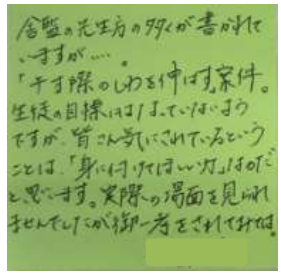 舎監の先生方の多くが書かれて
いますが…。
「干す際のしわを伸ばす」案件。
生徒の目標にはなっていないよう
ですが、皆さん気にされているという
ことは、「身に付けてほしい力」なのだ
と思います。実際の場面を見られ
ませんでしたが御一考をされてみては。